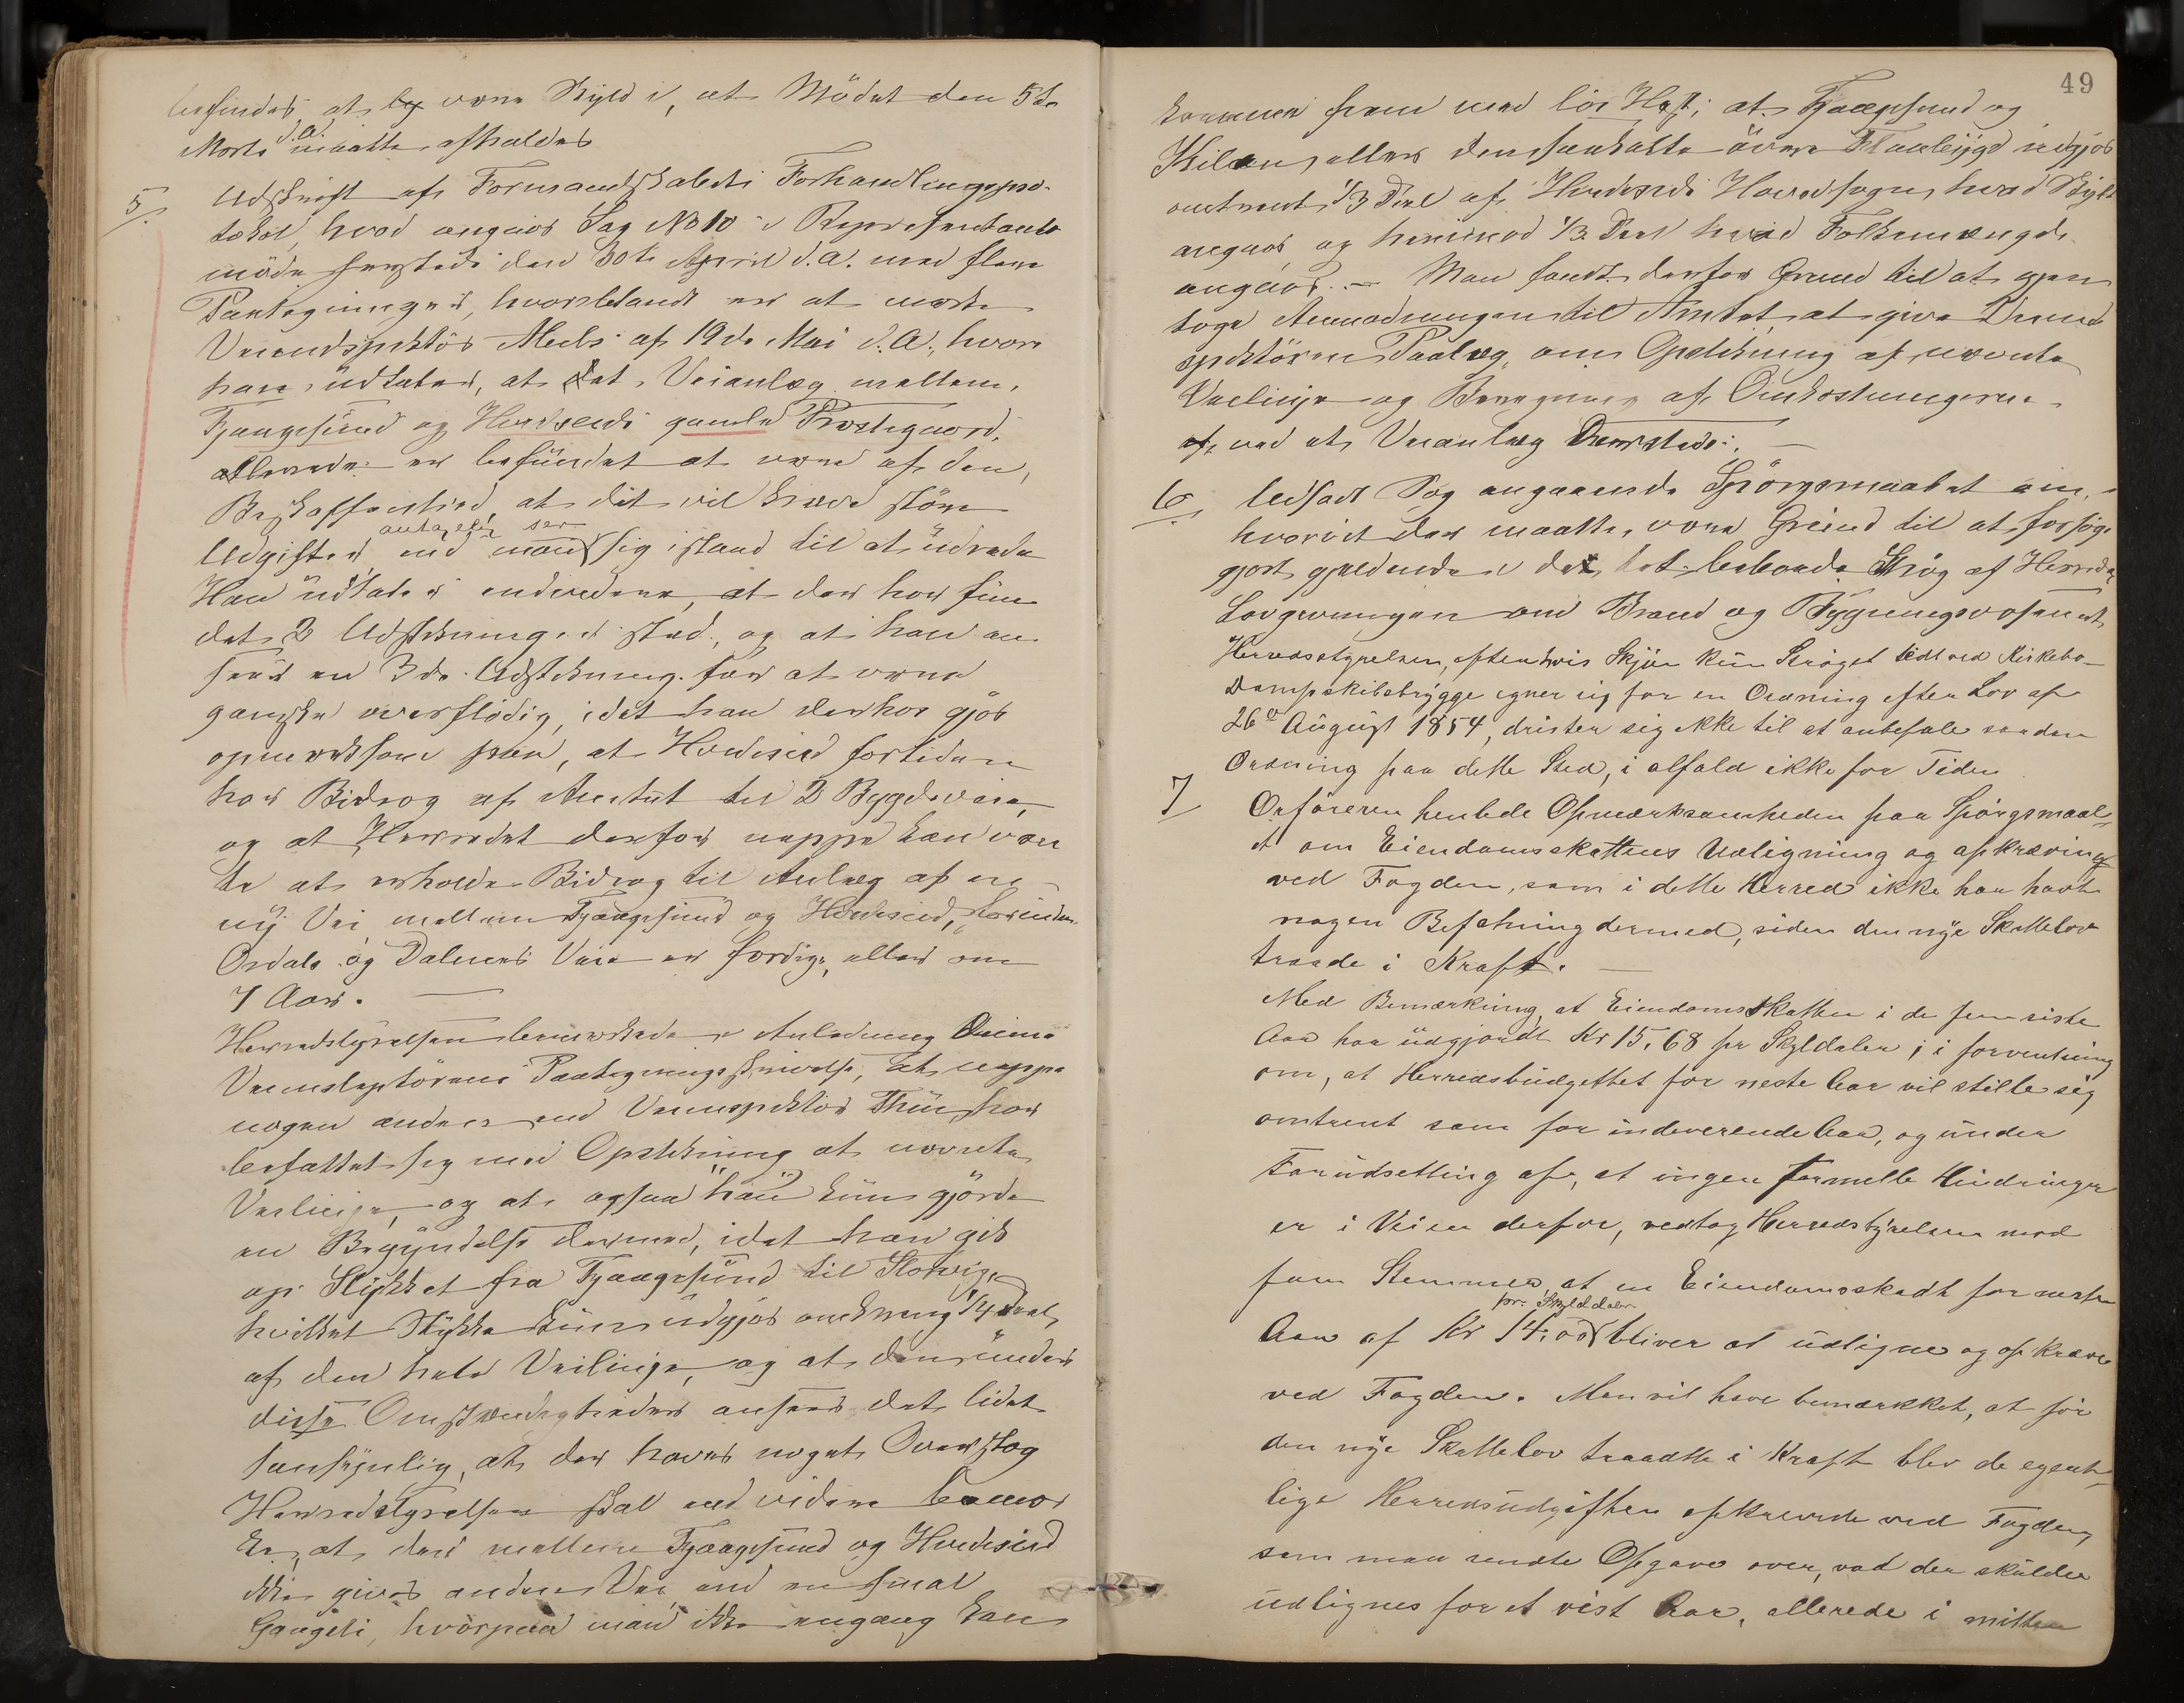 befindes at være Skyld i, at Mödet den 5te
Marts d. A. maatte afholdes
5. Udskrift af Formandskabets Forhandlingspro-
tokol, hvad angaar Sag No 10 i Repræsentants
möde sersteds den 30te April d. A. med flere
Paategninger, hvoriblandt er at merke
Veiinspektör Aleks af 19de Mai d. A., hvori
han udtaler, at et Veianlæg mellem
Fjaagesund og Hvideseids gamle Prestegaard,
allerede er befundet at være af den
Beskaffenhed, at det vil kræve större
antagelig ser
Udgifter, end man sig istand til at udrede
Han udtaler endvidere, at der har fun-
det 2 Udstikninger sted, og at han an-
seer en 3die Udstikning for at være
ganske overflödig, idet han derhos gjör
opmerksom paa, at Hvideseid fortiden
har Bidrag af Amtet til 2 Bygdeveie,
og at Herredet derfor neppe kan ven-
te at erholde Bidrag til Anlæg af en
ny Vei mellem Fjaagesund og Hvideseid, förinden
Ordals og Dalenes Veie er færdige, eller om
7 Aar. —
Herredstyrelsen bemerkede i Anledning
Veiinspektörens Paategningsskrivelse, at neppe
nogen anden end Veiinspektör Thu har
befattet sig med Opstikning at nævnte
Veilinje, og at ogsaa "han" kun gjörde
en Begyndelse dermed, idet han gik
op Stykket fra Fjaagesund til Storvig,
hvilket Stykke kun udgjör omkring 1/4 Deel
af den hele Veilinje, og at den under
disse Omstændigheder ansees det lidet
sansynlig, at der haves noget Overslag
Herredstyrelsen skal end videre bemer-
ke, at der mellem Fjaagesund og Hvideseid
ikke gives anden Vei end en smal
Gangsti, hvorpaa man ikke engang kan
49
komme frem med lös Hest; at Fjaagesund og
Kilen, eller den saakaldte övre Flaabygd udgjör
omtrent 1/3 Deel af Hvideseids Hovedsogn, hvad Skyld
angaar, og henimod 1/3 Deel hvad Folkemængde
angaar. — Man fandt derfor Grund til at gjen
toge Anmodningen til Amtet at give Veiind
spektören Paalæg om Opstikning af nævnte
Veilinje og Beregning af Omkostningerne
af ved et Veianlæg
6. Udsadt Sag angaaende Spörgsmaalet om,
hvorvidt der maatte være Grund til at forsöge
gjort gjeldende i det tet beboede Strög af Herredet
Lovgivningen om Brand og Bygningsvæsenet
Herredsstyrelsen, efter hvis Skjön kun Ströget ved Kirkebö
Dampskibsbrygge egner sig for en Ordning efter Lov af
26de August 1854, drister sig ikke til at anbefale saadan
Ordning paa dette Sted, i alfald ikke for Tiden
7 Ordföreren henlede Opmærksomheden paa Spörgsmaal-
et om Eiendomsskattens Udligning og opkræving
ved Fogden, som i dette Herred ikke har havt
nogen Befatning dermed, siden den nye Skattelov
traade i Kraft. —
Med Bemærkning, at Eiendomsskatten i de fem siste
Aar har udgjordt Kr 15,68 pr Skyldaler; i forventning
om, at Herredsbudgettet for neste Aar vil stille sig
omtrent som for indeverende Aar, og under
Forudsetting af, at ingen formelle Hindringer
er i Veien derfor, vedtog Herredstyrelsen mod
fem Stemmer, at en Eiendomsskadt for neste
pr: Skylddaler
Aar af Kr 14,00 bliver at udligne og opkræve
ved Fogden. Man vil have bemærkket, at för
den nye Skattelov traadte i Kraft blev de egent-
lige Herredsudgifter opkrævede ved Fogden,
som man sendte Opgave over, vad der skulde
udlignes for et vist Aar, allerede i mitten